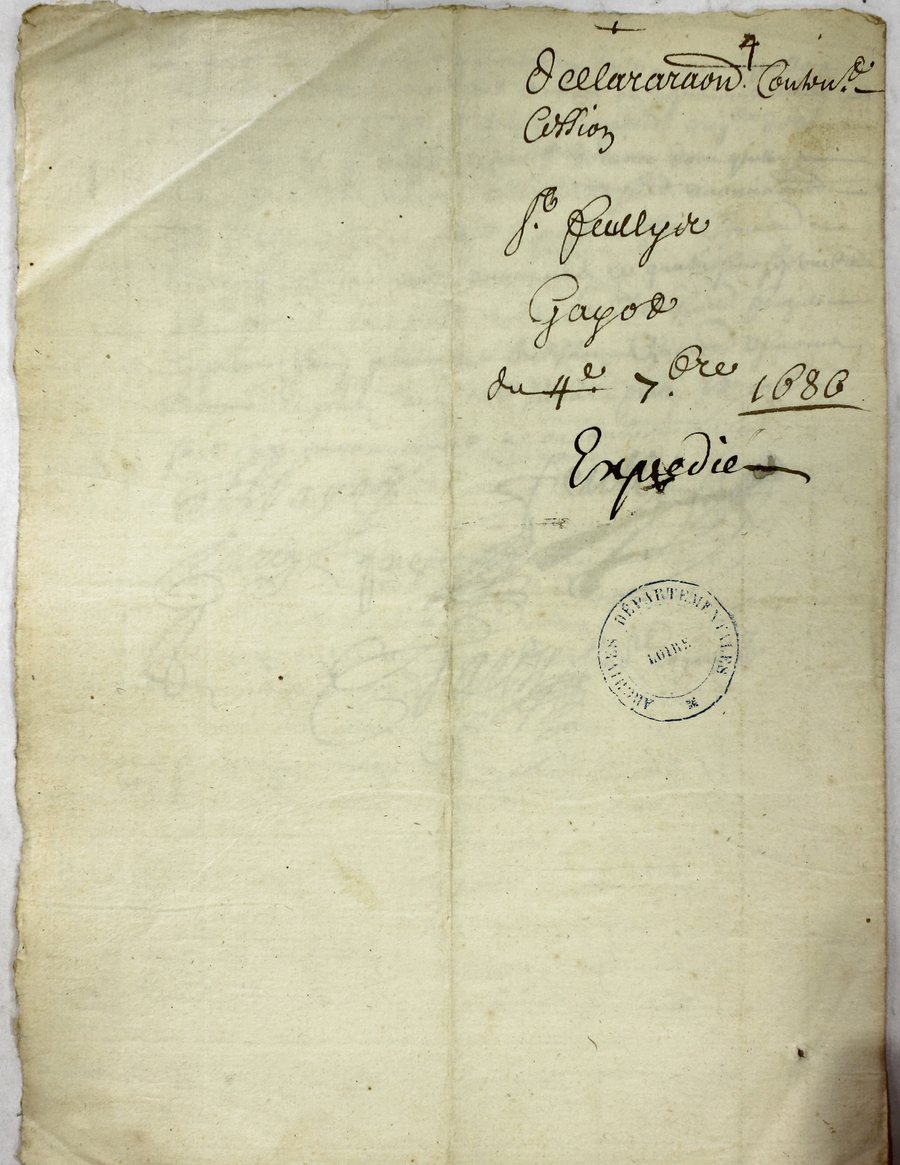 4
declararaon Content.
Cession
sr feullyer
Gayot
du 4e 7.bre 1686
Expedié
ARCHIVES DÉPARTEMENTALES
LOIRE